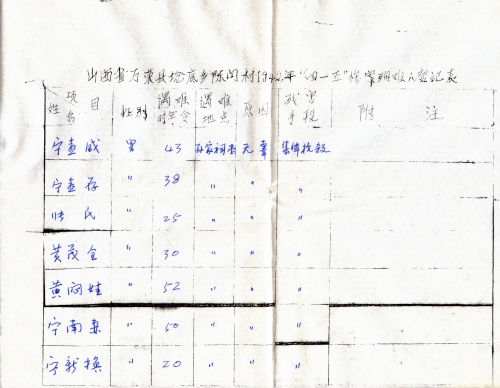 山西省万荣县埝底乡陈阎村1942年“四一五”惨案遇难人登记表
项目 姓名 性别 遇难时年令 遇难地点 原因 残害手段 附注
宁 威 男 43 孙家祠 无辜 集体枪杀
宁 存 〃 38 〃 〃 〃
氏 〃 25 〃 〃 〃
黄茂全 〃 30 〃 〃 〃
黄 娃 〃 52 〃 〃 〃
宁南 〃 50 〃 〃 〃
宁新换 〃 20 〃 〃 〃